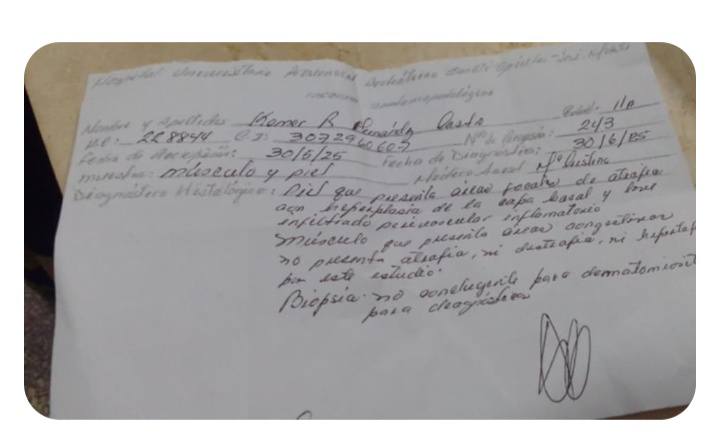 Hospital Universitario Provincial
Informe anatomopatológico
Nombre y Apellidos Komer R Hernández Casta Edad: 11a
H.C: 228844 C.I: 30729 60607 Nº de Biopsia: 24/3
Fecha de Recepción: 30/5/25 Fecha de Diagnóstico: 30/6/25
Muestra: Músculo y piel Médico Asist Mª Cristina
Diagnóstico Histológico: Piel que presenta áreas focales de atrofia
con hiperplasia de la capa basal y leve
infiltrado perivascular inflamatorio
Músculo que presenta áreas congestivas
no presenta atrofia, ni distrofia, ni
por este estudio.
Biopsia no concluyente para
para diagnóstico